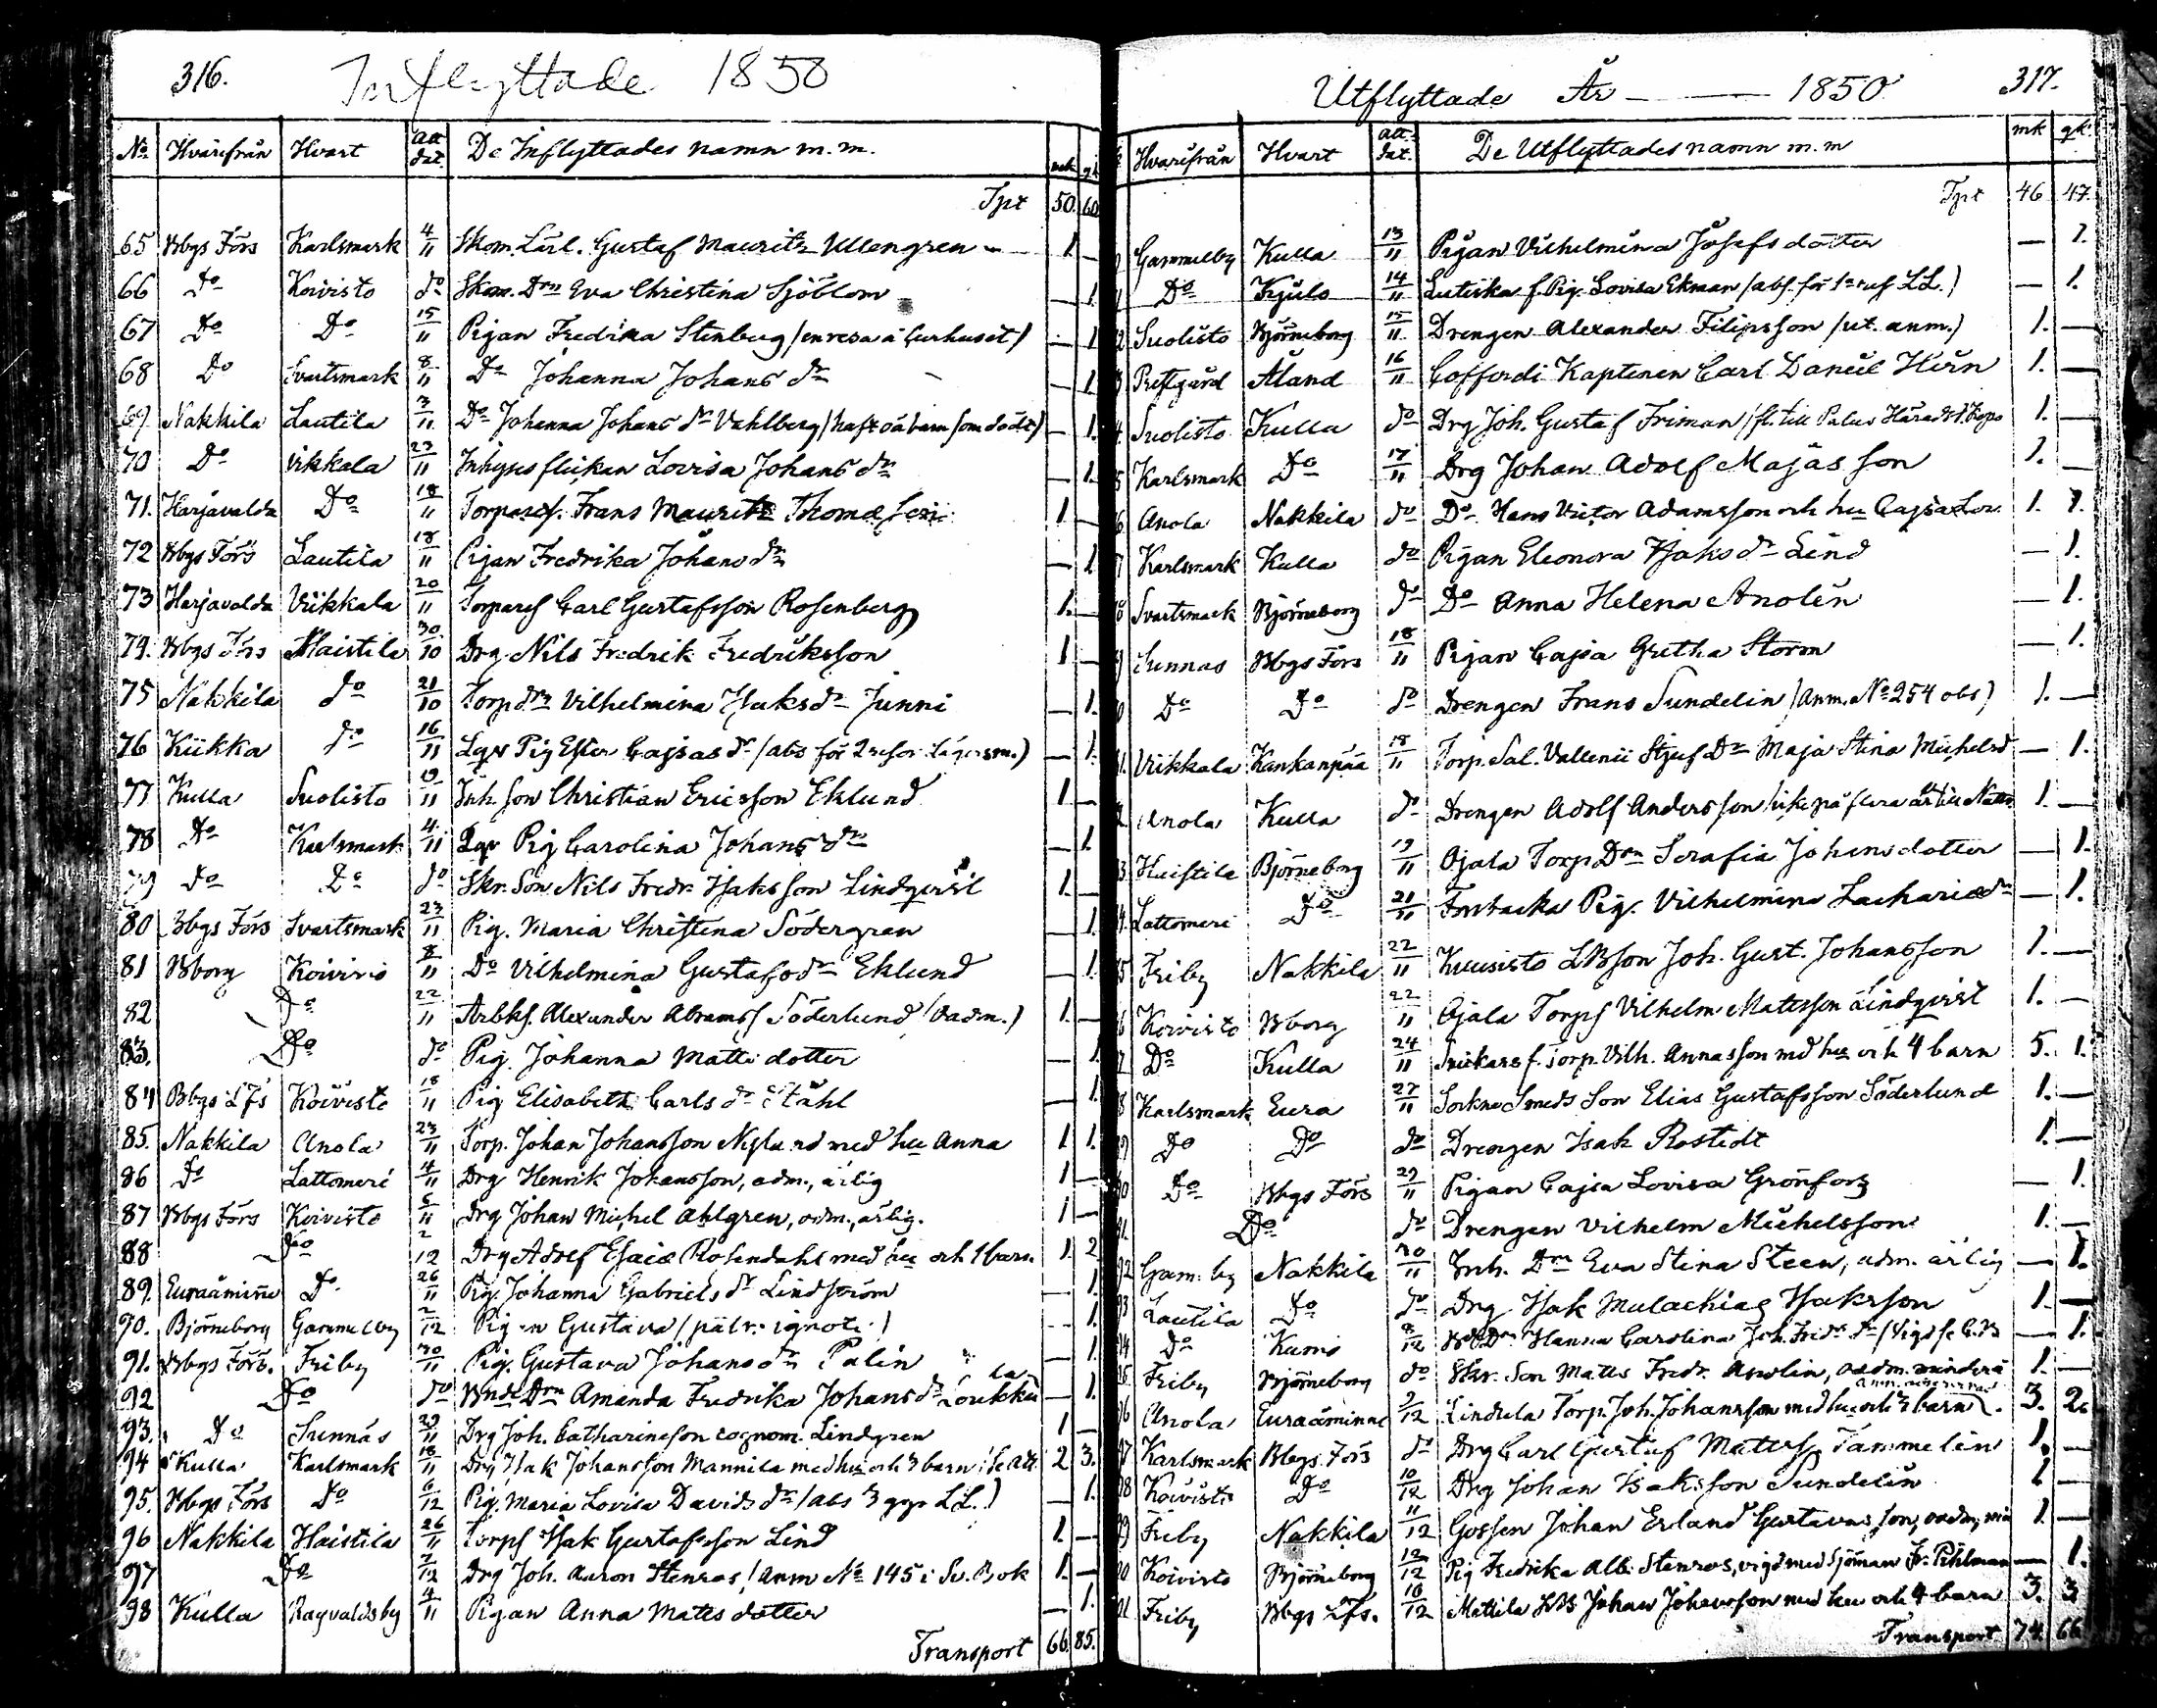 316.
Inflyttade 1850
No Hvarifrån Hvart Att dat. De Inflyttades namn m.m. mk qk
Tpt 50. 60
65 Bbgs Förs Karlsmark 4/11 Skom. Lärl. Gustaf Mauritz Ullengren 1. —
66 Do Koivisto do Skom. Drn Eva Christina Sjöblom — 1.
67 Do Do 15/11 Pigan Fredrika Stenberg / en resa å Curhuset / — 1
68 Do Svartsmark 8/11 Do Johanna Johans dr — 1.
69. Nakkila Lautila 3/11 Do Johanna Johans dr Vahlberg / haft oä barn som dödt / — 1.
70 Do Vikkala 23/11 Inhyses flickan Lovisa Johans dr — 1.
71. Harjavalda Do 18/11 Torpares. Frans Mauritz Thomasson 1 —
72 Bbgs Förs Lautila 18/11 Pigan Fredrika Johans dr — 1
73 Harjavalda Viikkala 20/11 Torpares Carl Gustafsson Rosenberg 1. —
74. Bbgs Förs Haistila 30/10 Drg Nils Fredrik Fredriksson 1 —
75 Nakkila do 21/10 Torp drn Vilhelmina Isaks dr Junni — 1.
76 Kiikka do 16/11 Pig Ester Cajsas dr / abs för 2 resor lägersm.) — 1.
77 Kulla Suolisto 19/11 Inh. son Christian Ericsson Eklund 1 —
78 Do Karlsmark 4/11 Pig Carolina Johans dr — 1
79 do Do do Skr. Son Nils Fredr. Isaksson Lindqvist 1. —
80 Bbgs Förs Svartsmark 23/11 Pig. Maria Christina Södergren — 1.
81 Bborg Koivisto 8/11 Do Vilhelmina Gustafs dr Eklund — 1.
82 Do 22/11 Arbks. Alexander Abramss Söderlund (oadm.) 1. —
83. Do do Pig. Johanna Matts dotter — 1.
84 Bbgs Lfs Koivisto 18/11 Pig Elisabeth Carls dr Ståhl — 1.
85. Nakkila Anola 23/11 Torp. Johan Johansson Nylund med hu Anna 1 1.
86 Do Lattomeri 4/11 Drg Henrik Johansson, adm., ärlig 1 —
87 Bbgs Förs Koivisto 6/11 Drg Johan Michel Ahlgren, adm., ärlig. 1 —
88 Do 2/12 Drg Adolf Esaias Rosendahl med hu och 1 barn. 1. 2
89. Euraåminne Do 26/11 Pig. Johanna Gabriels dr Lindström — 1.
90. Björneborg Gammelby 2/12 Pigan Gustava / patr. ignot. / — 1.
91. Bbgs Förs. Friby 30/11 Pig. Gustava Johans dr Palin — 1.
92 Do do Bnde Drn Amanda Fredrika Johans dr — 1.
93. Do Sunnäs 29/11 Drg Joh. Catharinason cognom. Lindgren 1 —
94 Kulla Karlsmark 18/11 Drg Isak Johansson Mannila med hu och 3 barn / Se att. 2 3.
95. Bbgs Förs Do 6/12 Pig. Maria Lovisa Davids dr / abs 3 ggr LL.) — 1.
96 Nakkila Haistila 26/11 Torps Isak Gustafsson Lind 1. —
97 Do 7/12 Drg Joh. Aaron Stenros / Anm No 145 i Sv. Bok 1. —
98 Kulla Ragvaldsby 4/11 Pigan Anna Matts dotter — 1.
Transport 66. 85.
Utflyttade År — 1850 317.
Hvarifrån Hvart Att. dat. De Utflyttades namn m.m mk qk.
Tpt 46 47.
Gammelby Kulla 13/11 Pigan Vilhelmina Josefs dotter — 1.
Do Kjulo 14/11 Lutiska f. Pig. Lovisa Ekman / abs. för 1a ruf LL.) — 1.
Suolisto Björneborg 15/11 Drengen Alexander Filipsson / ut. anm.) 1. —
Prestgård Åland 16/11 Cofferdi Kaptenen Carl Daniel Hirn 1. —
Suolisto Kulla do Drg Joh. Gustaf Friman / 1. —
Karlsmark Do 17/11 Drg Johan Adolf Majasson 1. —
Anola Nakkila do Do Hans Victor Adamsson och hu Cajsa Lov. 1. 1.
Karlsmark Kulla do Pigan Eleonora Isaks dr Lind — 1.
Svartsmark Björneborg do Do Anna Helena Anolén — 1.
Sunnas Bbgs Förs 18/11 Pigan Cajsa Gretha Storm — 1.
Do Do do Drengen Frans Sundelin / Anm. No 254 obs) 1. —
Viikkala Kankanpää 18/11 Torp. Sal. Vallenii Stjuf Dr Maja Stina Michelsd — 1.
Anola Kulla do Drengen Adolf Andersson / icke på flera år till Nattv. 1. —
Haistila Björneborg 19/11 Ojala Torp Drn Serafia Johansdotter — 1.
Lattomeri Do 21/11 Pig. Vilhelmina Zacharias dr — 1.
Friby Nakkila 22/11 Kuusisto LBson Joh. Gust. Johansson 1. —
Koivisto Bborg 22/11 Ojala Torps Vilhelm Mattsson Lindqvist 1. —
Do Kulla 24/11 Torp. Vilh. Annasson md hu och 4 barn 5. 1.
Karlsmark Eura 27/11 Sockne Smeds Son Elias Gustafsson Söderlund 1. —
Do Do do Drengen Isak Rostedt 1. —
Do Bbgs Förs 29/11 Pigan Cajsa Lovisa Grönfors — 1.
Do do Drengen Vilhelm Michelsson 1. —
Gam. by Nakkila 30/11 Inh. Drn Eva Stina Steen, adm. ärlig — 1.
Lautila Do do Drg Isak Malachias Isaksson 1. —
Do Kumo 8/12 Hanna Carolina Joh. Fredr. dr — 1.
Friby Björneborg do Skr. Son Matts Fredr. Anolin, oadm. minderå 1. —
Anola Euraåminne 9/12 Lindula Torp. Joh. Johansson med hu och 3 barn 3. 2.
Karlsmark Bbgs Förs do Drg Carl Gustaf Mattss Tammelin 1. —
Koivisto Do 10/12 Drg Johan Isaksson Sundelin 1 —
Friby Nakkila 11/12 Gossen Johan Erland Gustavasson, oadm, 1 —
Koivisto Björneborg 12/12 Pig Fredrika Alb. Stenros, vigd med Sjöman Fr. Pihlman — 1.
Friby Bbgs Lfs. 16/12 Mattila LB Johan Johansson med hu och 4 barn 3. 3
Transport 74 66